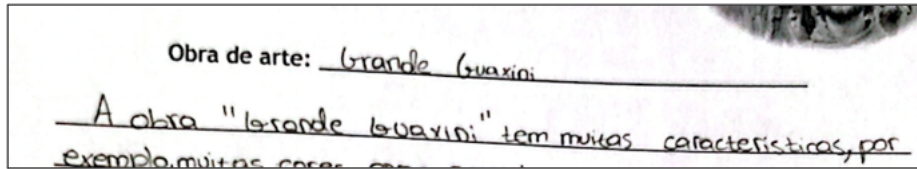 Obra de arte: Grande Guaxini
A obra "Grande Guaxini" tem muitas características, por
exemplo, muitas cores